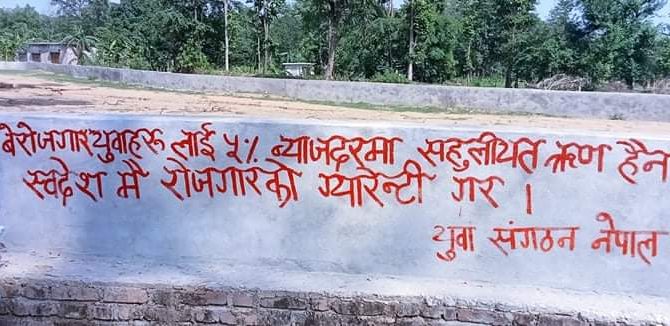 बेरोजगार युवाहरू लाई ५% ब्याजदरमा सहुलीयत ऋण हैन
स्वदेश मै रोजगारको ग्यारेन्टी गर ।
युवा संगठन नेपाल